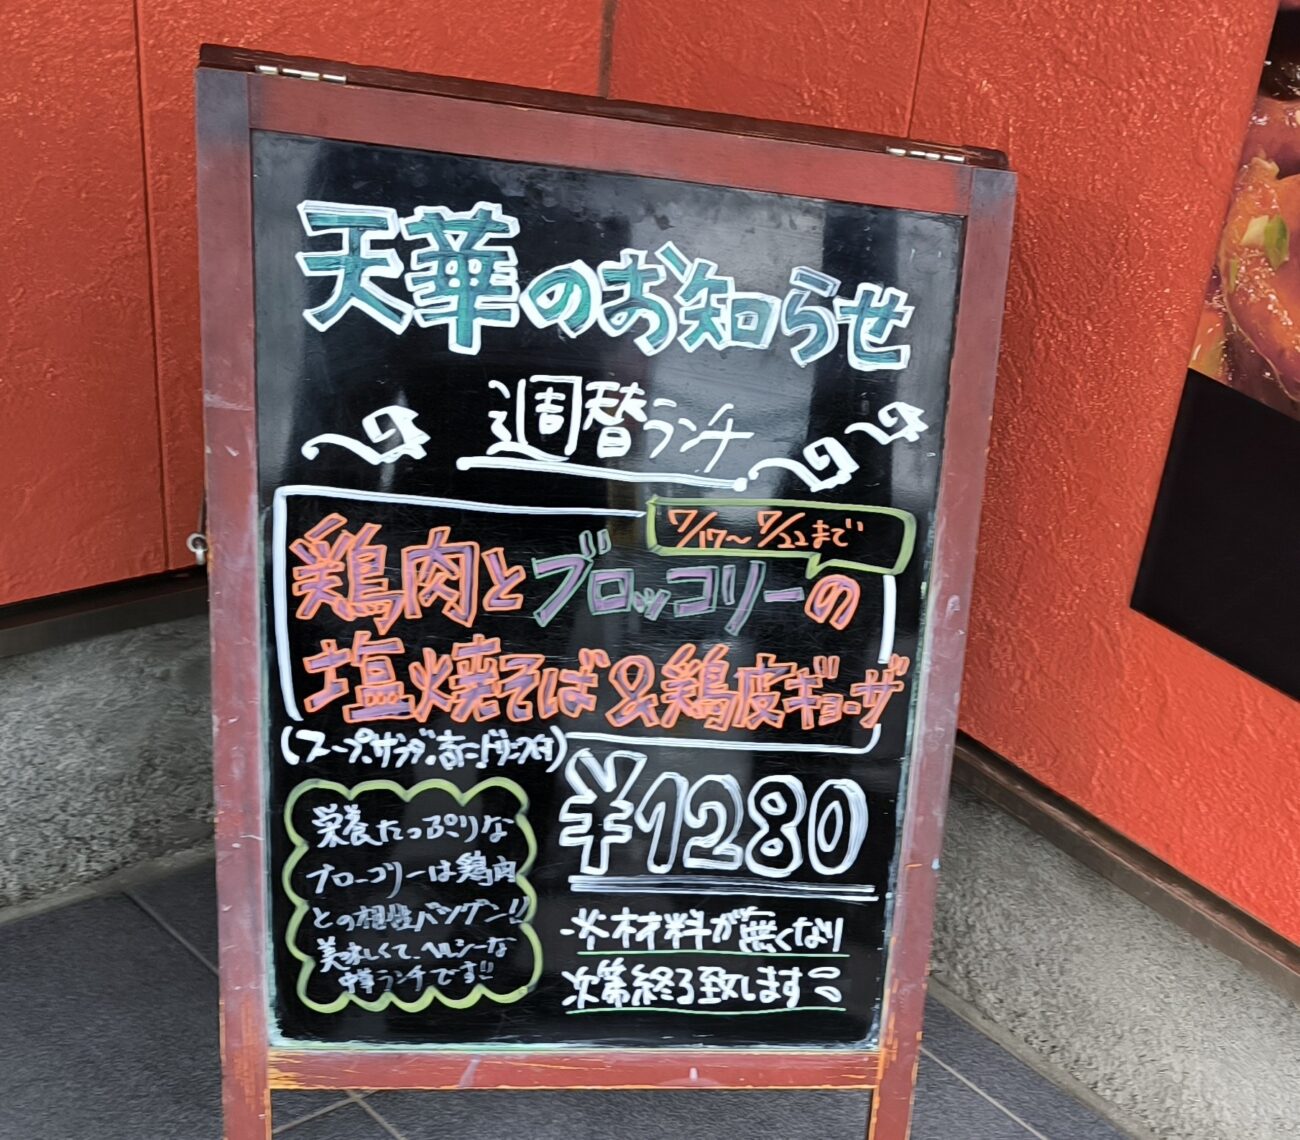 天華のお知らせ
週替ランチ
7/17〜7/22まで
鶏肉とブロッコリーの
塩焼そば&鶏皮ギョーザ
(スープ、サラダ、杏仁、ドリンク付)
¥1280
栄養たっぷりな
ブロッコリーは鶏肉
との相性バツグン!!
美味しくて、ヘルシーな
中華ランチです!!
※材料が無くなり
次第終了致します